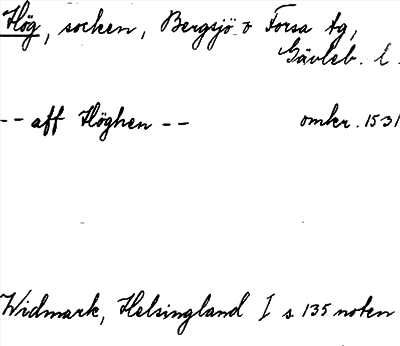 Hög, socken, Bergsjö o Forsa tg,
Gävleb. l.
-- aff Höghen -- omkr. 1531
Widmark, Helsingland I s. 135 noten